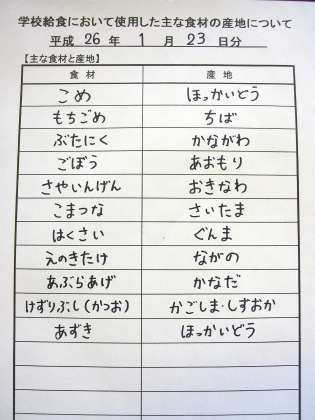 学校給食において使用した主な食材の産地について
平成 26 年 1 月 23 日分
【主な食材と産地】
食材 産地
こめ ほっかいどう
もちごめ ちば
ぶたにく かながわ
ごぼう あおもり
さやいんげん おきなわ
こまつな さいたま
はくさい ぐんま
えのきたけ ながの
あぶらあげ かなだ
けずりぶし(かつお) かごしま・しずおか
あずき ほっかいどう